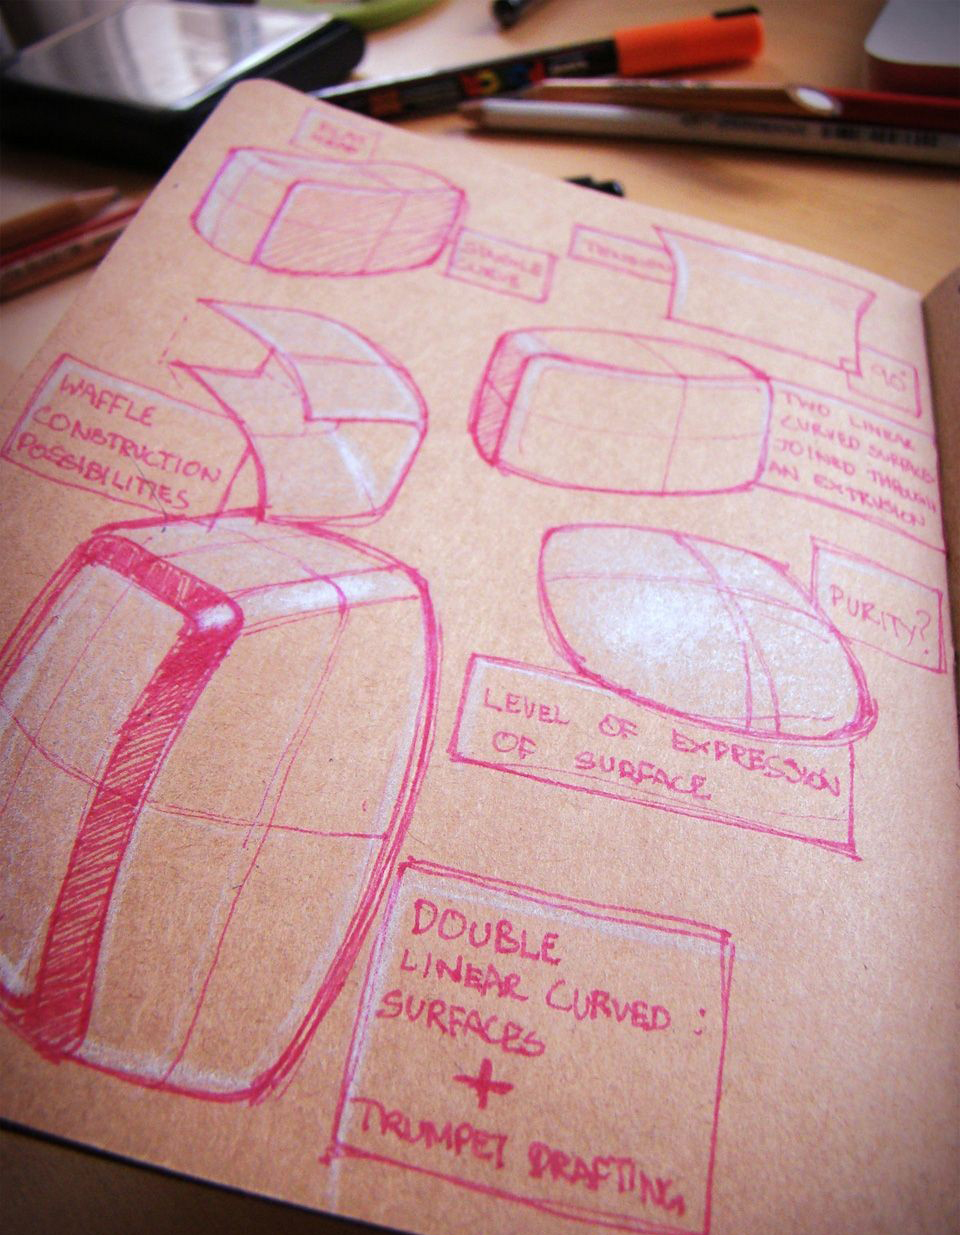 TENSION
90°
WAFFLE
CONSTRUCTION
POSSIBILITIES
TWO LINEAR
CURVED SURFACES
JOINED THROUGH
AN EXTRUSION
PURITY?
LEVEL OF EXPRESSION
OF SURFACE
DOUBLE
LINEAR CURVED :
SURFACES
+
TRUMPET DRAFTING